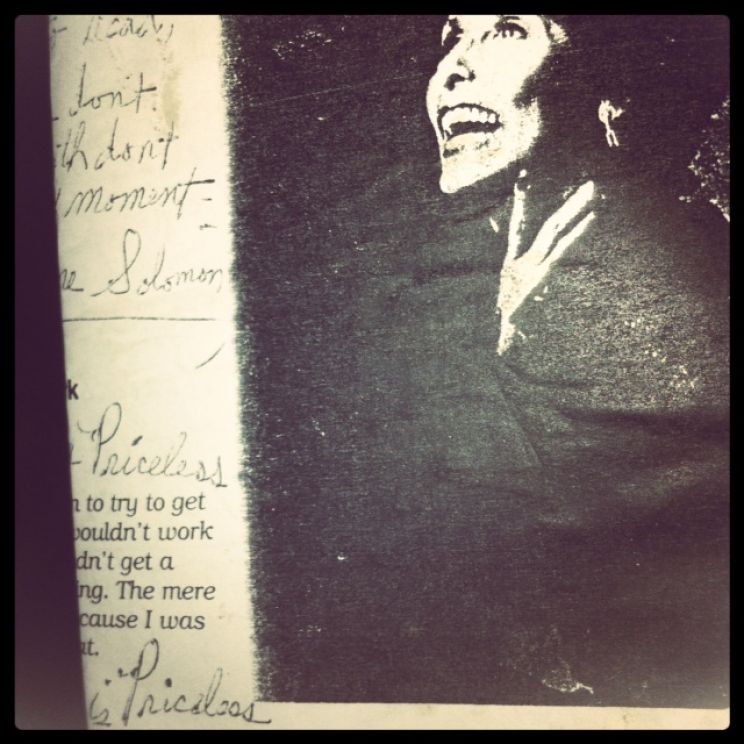 Ready,
don't
th don't
moment -
ne Solomon
k
Priceless
n to try to get
wouldn't work
dn't get a
ng. The mere
cause I was
ut.
is Priceless